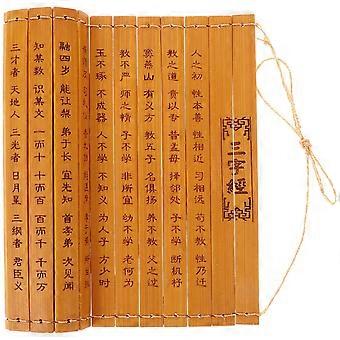 三字經
人之初 性本善 性相近 习相远 苟不教 性乃迁
教之道 贵以专 昔孟母 择邻处 子不学 断机杼
窦燕山 有义方 教五子 名俱扬 养不教 父之过
教不严 师之惰 子不学 非所宜 幼不学 老何为
玉不琢 不成器 人不学 不知义 为人子 方少时
融四岁 能让梨 弟于长 宜先知 首孝弟 次见闻
知某数 识某文 一而十 十而百 百而千 千而万
三才者 天地人 三光者 日月星 三纲者 君臣义